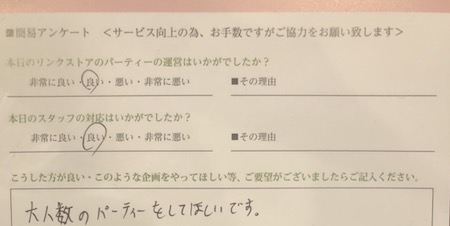 ■簡易アンケート ＜サービス向上の為、お手数ですがご協力をお願い致します＞
本日のリンクストアのパーティーの運営はいかがでしたか？
非常に良い・良い・悪い・非常に悪い ■その理由
本日のスタッフの対応はいかがでしたか？
非常に良い・良い・悪い・非常に悪い ■その理由
こうした方が良い・このような企画をやってほしい等、ご要望がございましたらご記入ください。
大人数のパーティーをしてほしいです。